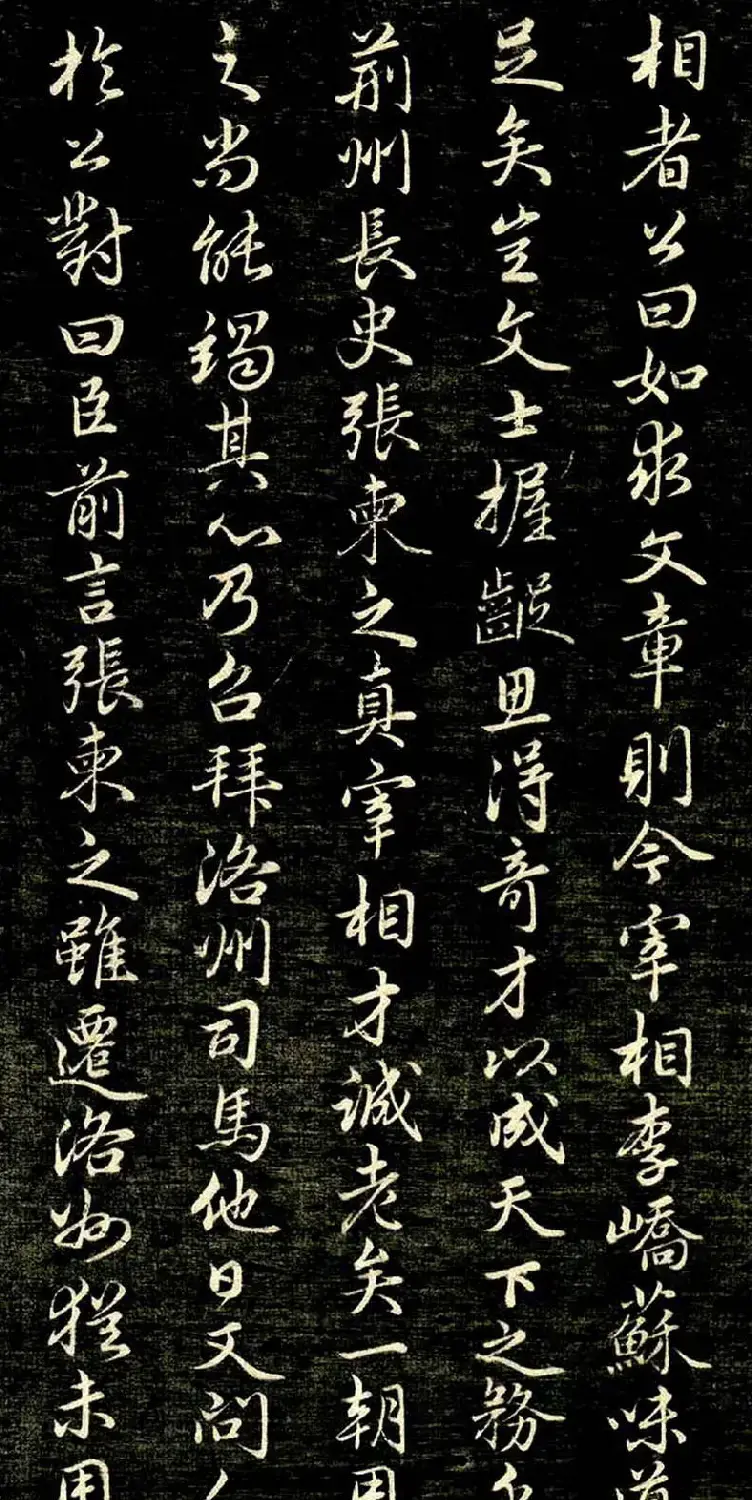 相者公曰如求文章則今宰相李嶠蘇味道
足矣豈文士握齪思得奇才以成天下之務
荊州長史張柬之真宰相才誠老矣一朝用
之尚能竭其心乃召拜洛州司馬他日又問
於公對曰臣前言張柬之雖遷洛州猶未用